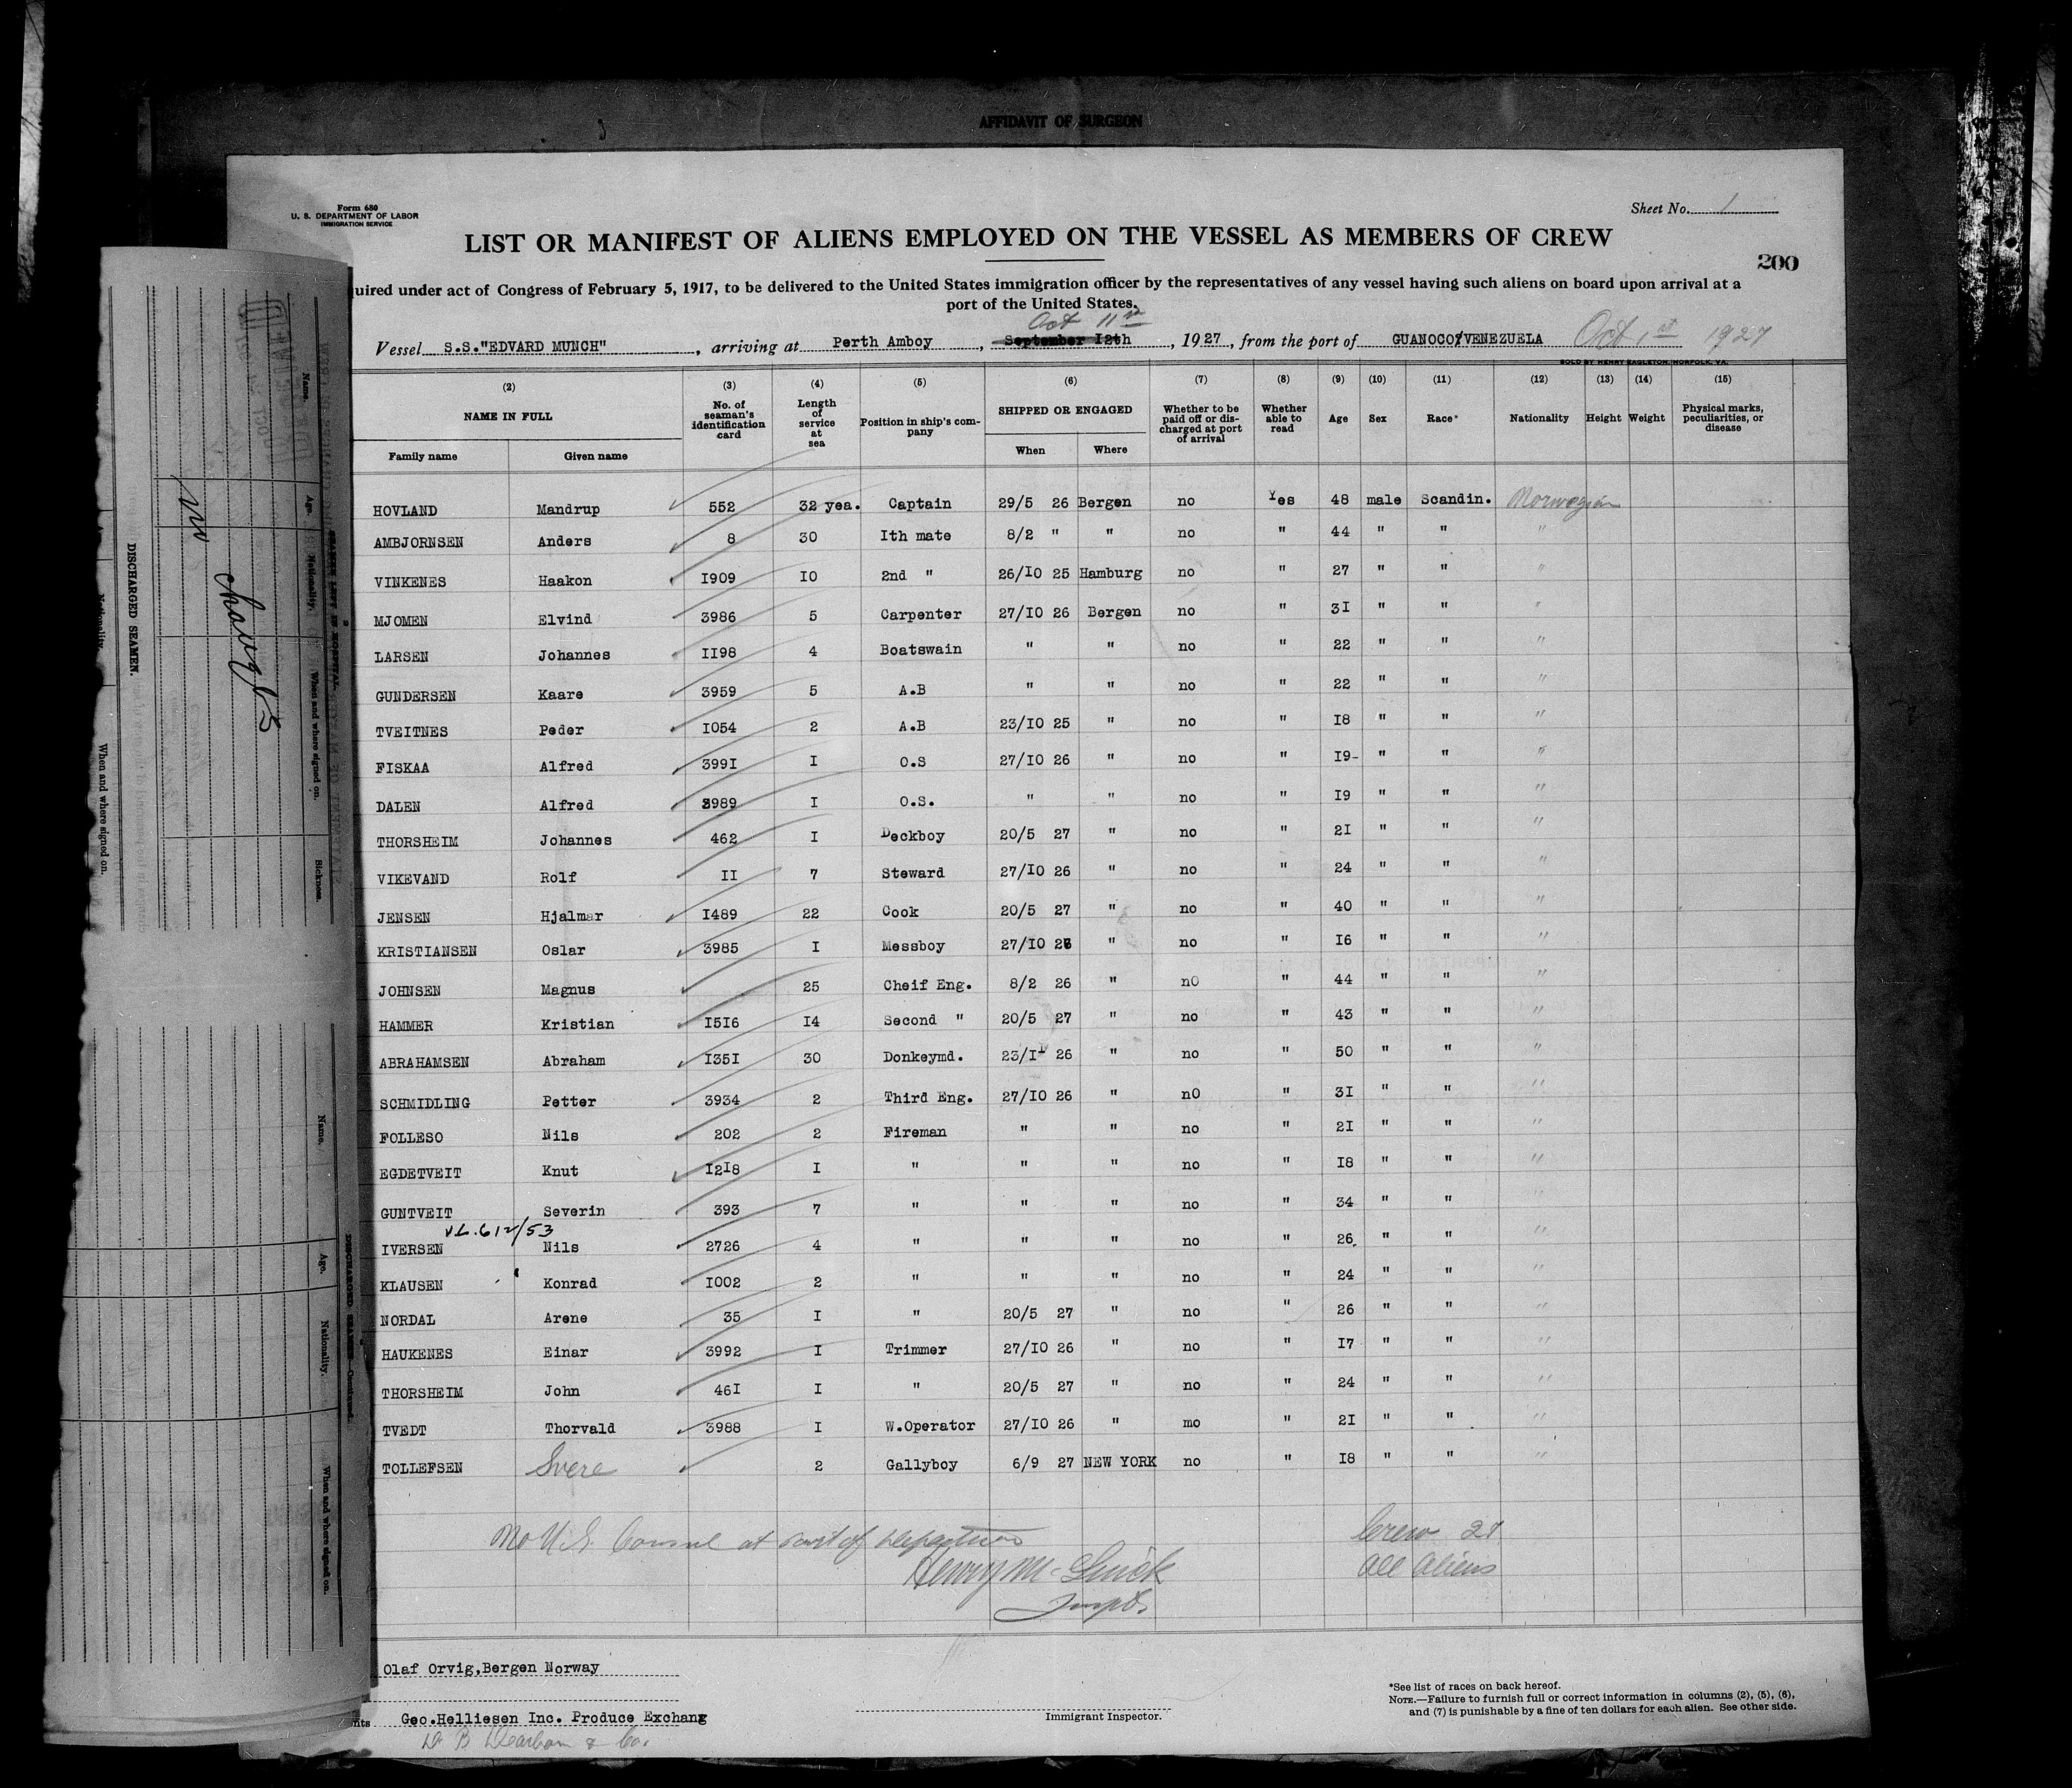 AFFIDAVIT OF SURGEON
Form 680
U. S. DEPARTMENT OF LABOR
IMMIGRATION SERVICE
Sheet No. 1
LIST OR MANIFEST OF ALIENS EMPLOYED ON THE VESSEL AS MEMBERS OF CREW
200
uired under act of Congress of February 5, 1917, to be delivered to the United States immigration officer by the representatives of any vessel having such aliens on board upon arrival at a
port of the United States.
Oct 11th
Vessel S.S."EDVARD MUNCH", arriving at Perth Amboy, September 12th, 1927, from the port of GUANOCO/VENEZUELA Oct 1st 1927
SOLD BY HENRY EAGLETON, NORFOLK, VA.
(2) (3) (4) (5) (6) (7) (8) (9) (10) (11) (12) (13) (14) (15)
NAME IN FULL No. of seaman's identification card Length of service at sea Position in ship's company SHIPPED OR ENGAGED Whether to be paid off or discharged at port of arrival Whether able to read Age Sex Race* Nationality Height Weight Physical marks, peculiarities, or disease
Family name Given name When Where
HOVLAND Mandrup 552 32 yea. Captain 29/5 26 Bergen no Yes 48 male Scandin. Norwegian
AMBJORNSEN Anders 8 30 Ith mate 8/2 " " no " 44 " " "
VINKENES Haakon I909 I0 2nd " 26/I0 25 Hamburg no " 27 " " "
MJOMEN Elvind 3986 5 Carpenter 27/I0 26 Bergen no " 3I " " "
LARSEN Johannes II98 4 Boatswain " " no " 22 " " "
GUNDERSEN Kaare 3959 5 A.B " " no " 22 " " "
TVEITNES Peder I054 2 A.B 23/I0 25 " no " I8 " " "
FISKAA Alfred 399I I O.S 27/I0 26 " no " I9- " " "
DALEN Alfred 3989 I O.S. " " no " I9 " " "
THORSHEIM Johannes 462 I Deckboy 20/5 27 " no " 2I " " "
VIKEVAND Rolf II 7 Steward 27/I0 26 " no " 24 " " "
JENSEN Hjalmar I489 22 Cook 20/5 27 " no " 40 " " "
KRISTIANSEN Oslar 3985 I Messboy 27/I0 26 " no " I6 " " "
JOHNSEN Magnus 25 Cheif Eng. 8/2 26 " nO " 44 " " "
HAMMER Kristian I5I6 I4 Second " 20/5 27 " no " 43 " " "
ABRAHAMSEN Abraham I35I 30 Donkeymd. 26 " no " 50 " " "
SCHMIDLING Petter 3934 2 Third Eng. 27/I0 26 " nO " 3I " " "
FOLLESO Nils 202 2 Fireman " " no " 2I " " "
EGDETVEIT Knut I2I8 I " " " no " I8 " " "
GUNTVEIT Severin 393 7 " " " no " 34 " " "
612/53
IVERSEN Nils 2726 4 " " " no " 26. " " "
KLAUSEN Konrad I002 2 " " " no " 24 " " "
NORDAL Arene 35 I " 20/5 27 " no " 26 " " "
HAUKENES Einar 3992 I Trimmer 27/I0 26 " no " I7 " " "
THORSHEIM John 46I I " 20/5 27 " no " 24 " " "
TVEDT Thorvald 3988 I W.Operator 27/I0 26 " mo " 2I " " "
TOLLEFSEN Svere 2 Gallyboy 6/9 27 NEW YORK no " I8 " " "
No U.S. Consul at port of departure
Crew 27
All Aliens
Henry
Olaf Orvig,Bergen Norway
nts Geo.Helliesen Inc. Produce Exchang
Dearborn & Co.
Immigrant Inspector.
*See list of races on back hereof.
NOTE.—Failure to furnish full or correct information in columns (2), (5), (6),
and (7) is punishable by a fine of ten dollars for each alien. See other side.
DISCHARGED SEAMEN.
Name. Age. Nationality. When and where signed on. Sickness.
no changes
Nationality. When and where signed on.
Name. Age. Nationality. When and where signed on.
DISCHARGED SEAMEN—Continued.